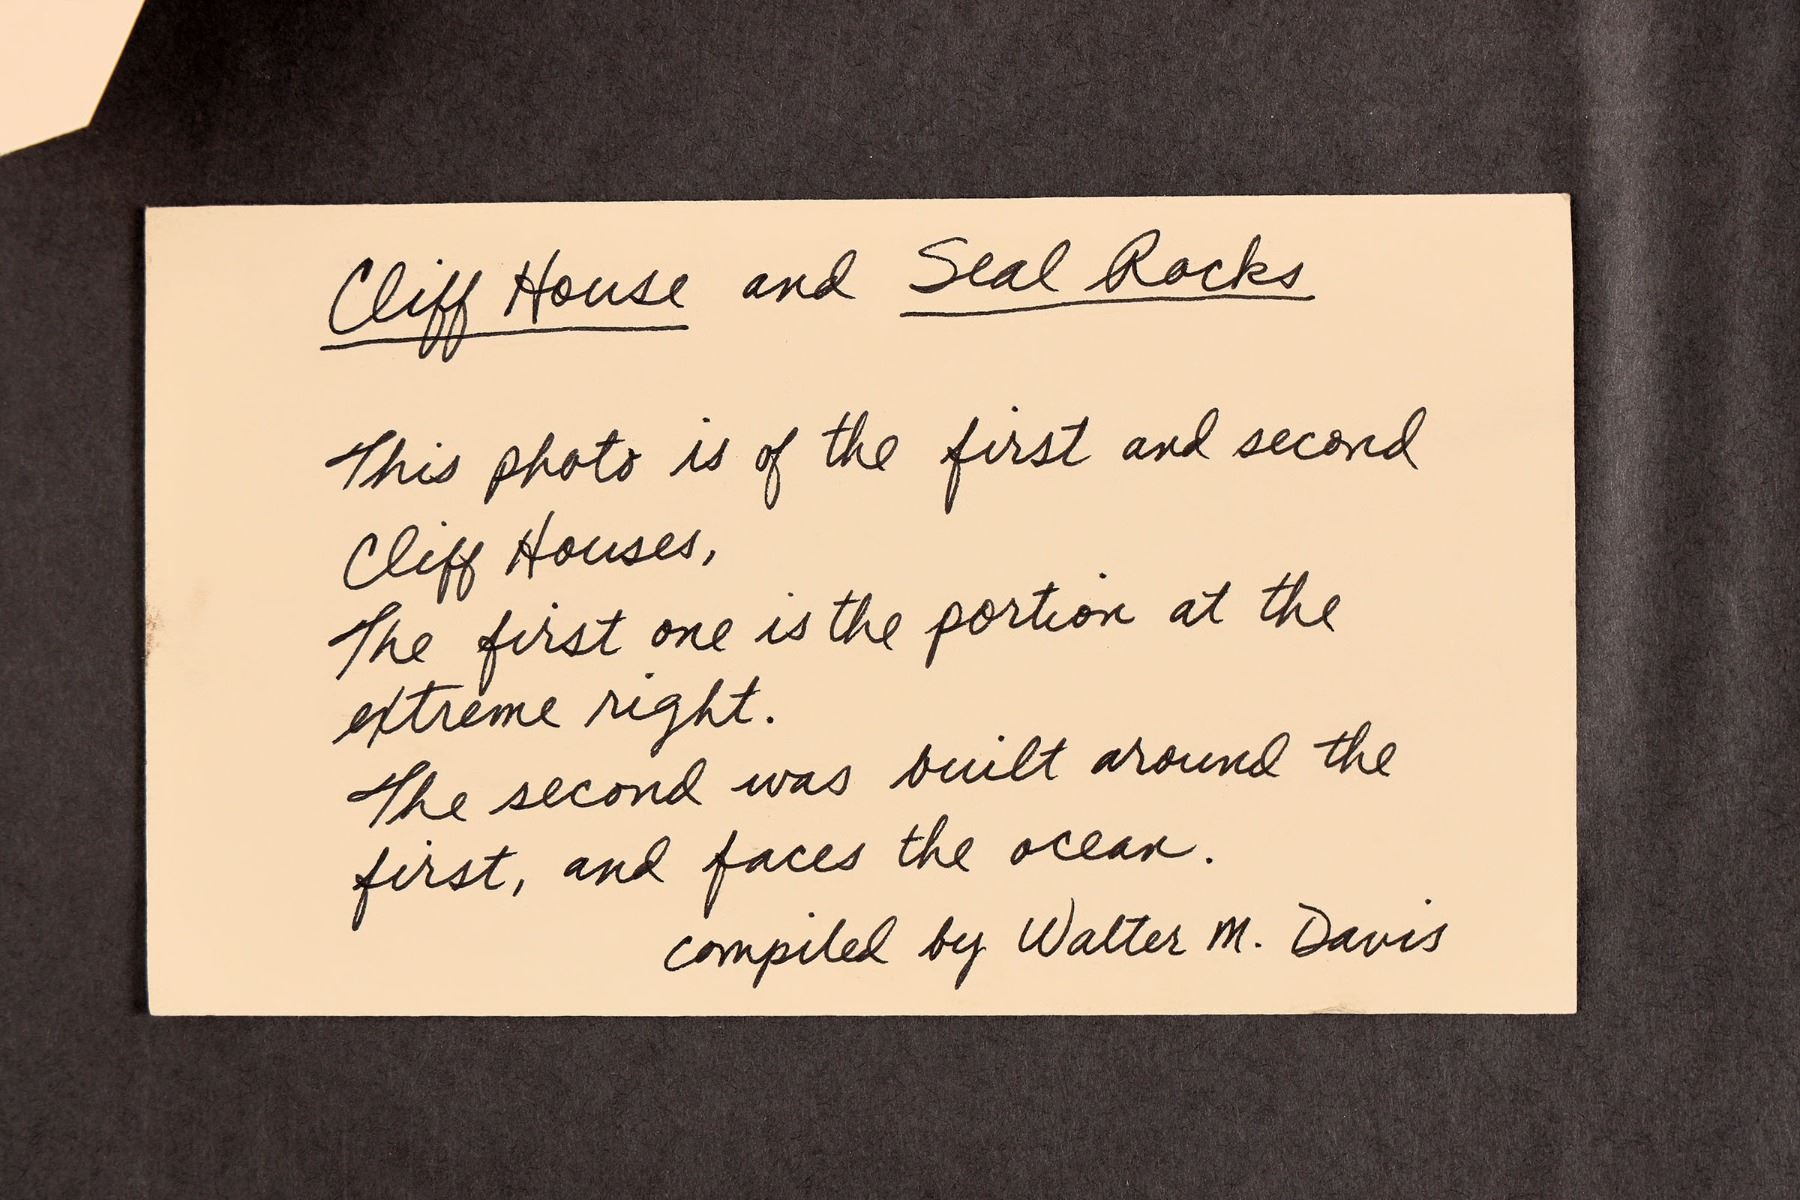 Cliff House and Seal Rocks
This photo is of the first and second
Cliff Houses,
The first one is the portion at the
extreme right.
The second was built around the
first, and faces the ocean.
compiled by Walter M. Davis